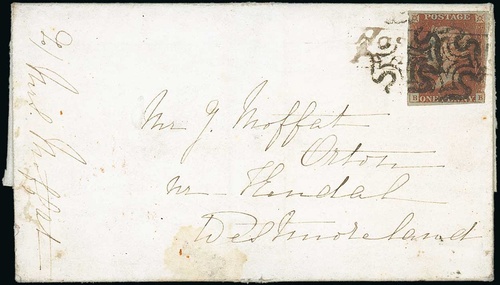 Mr J. Moffat
Orton
nr Kendal
Westmoreland
POSTAGE
ONE PENNY
B B